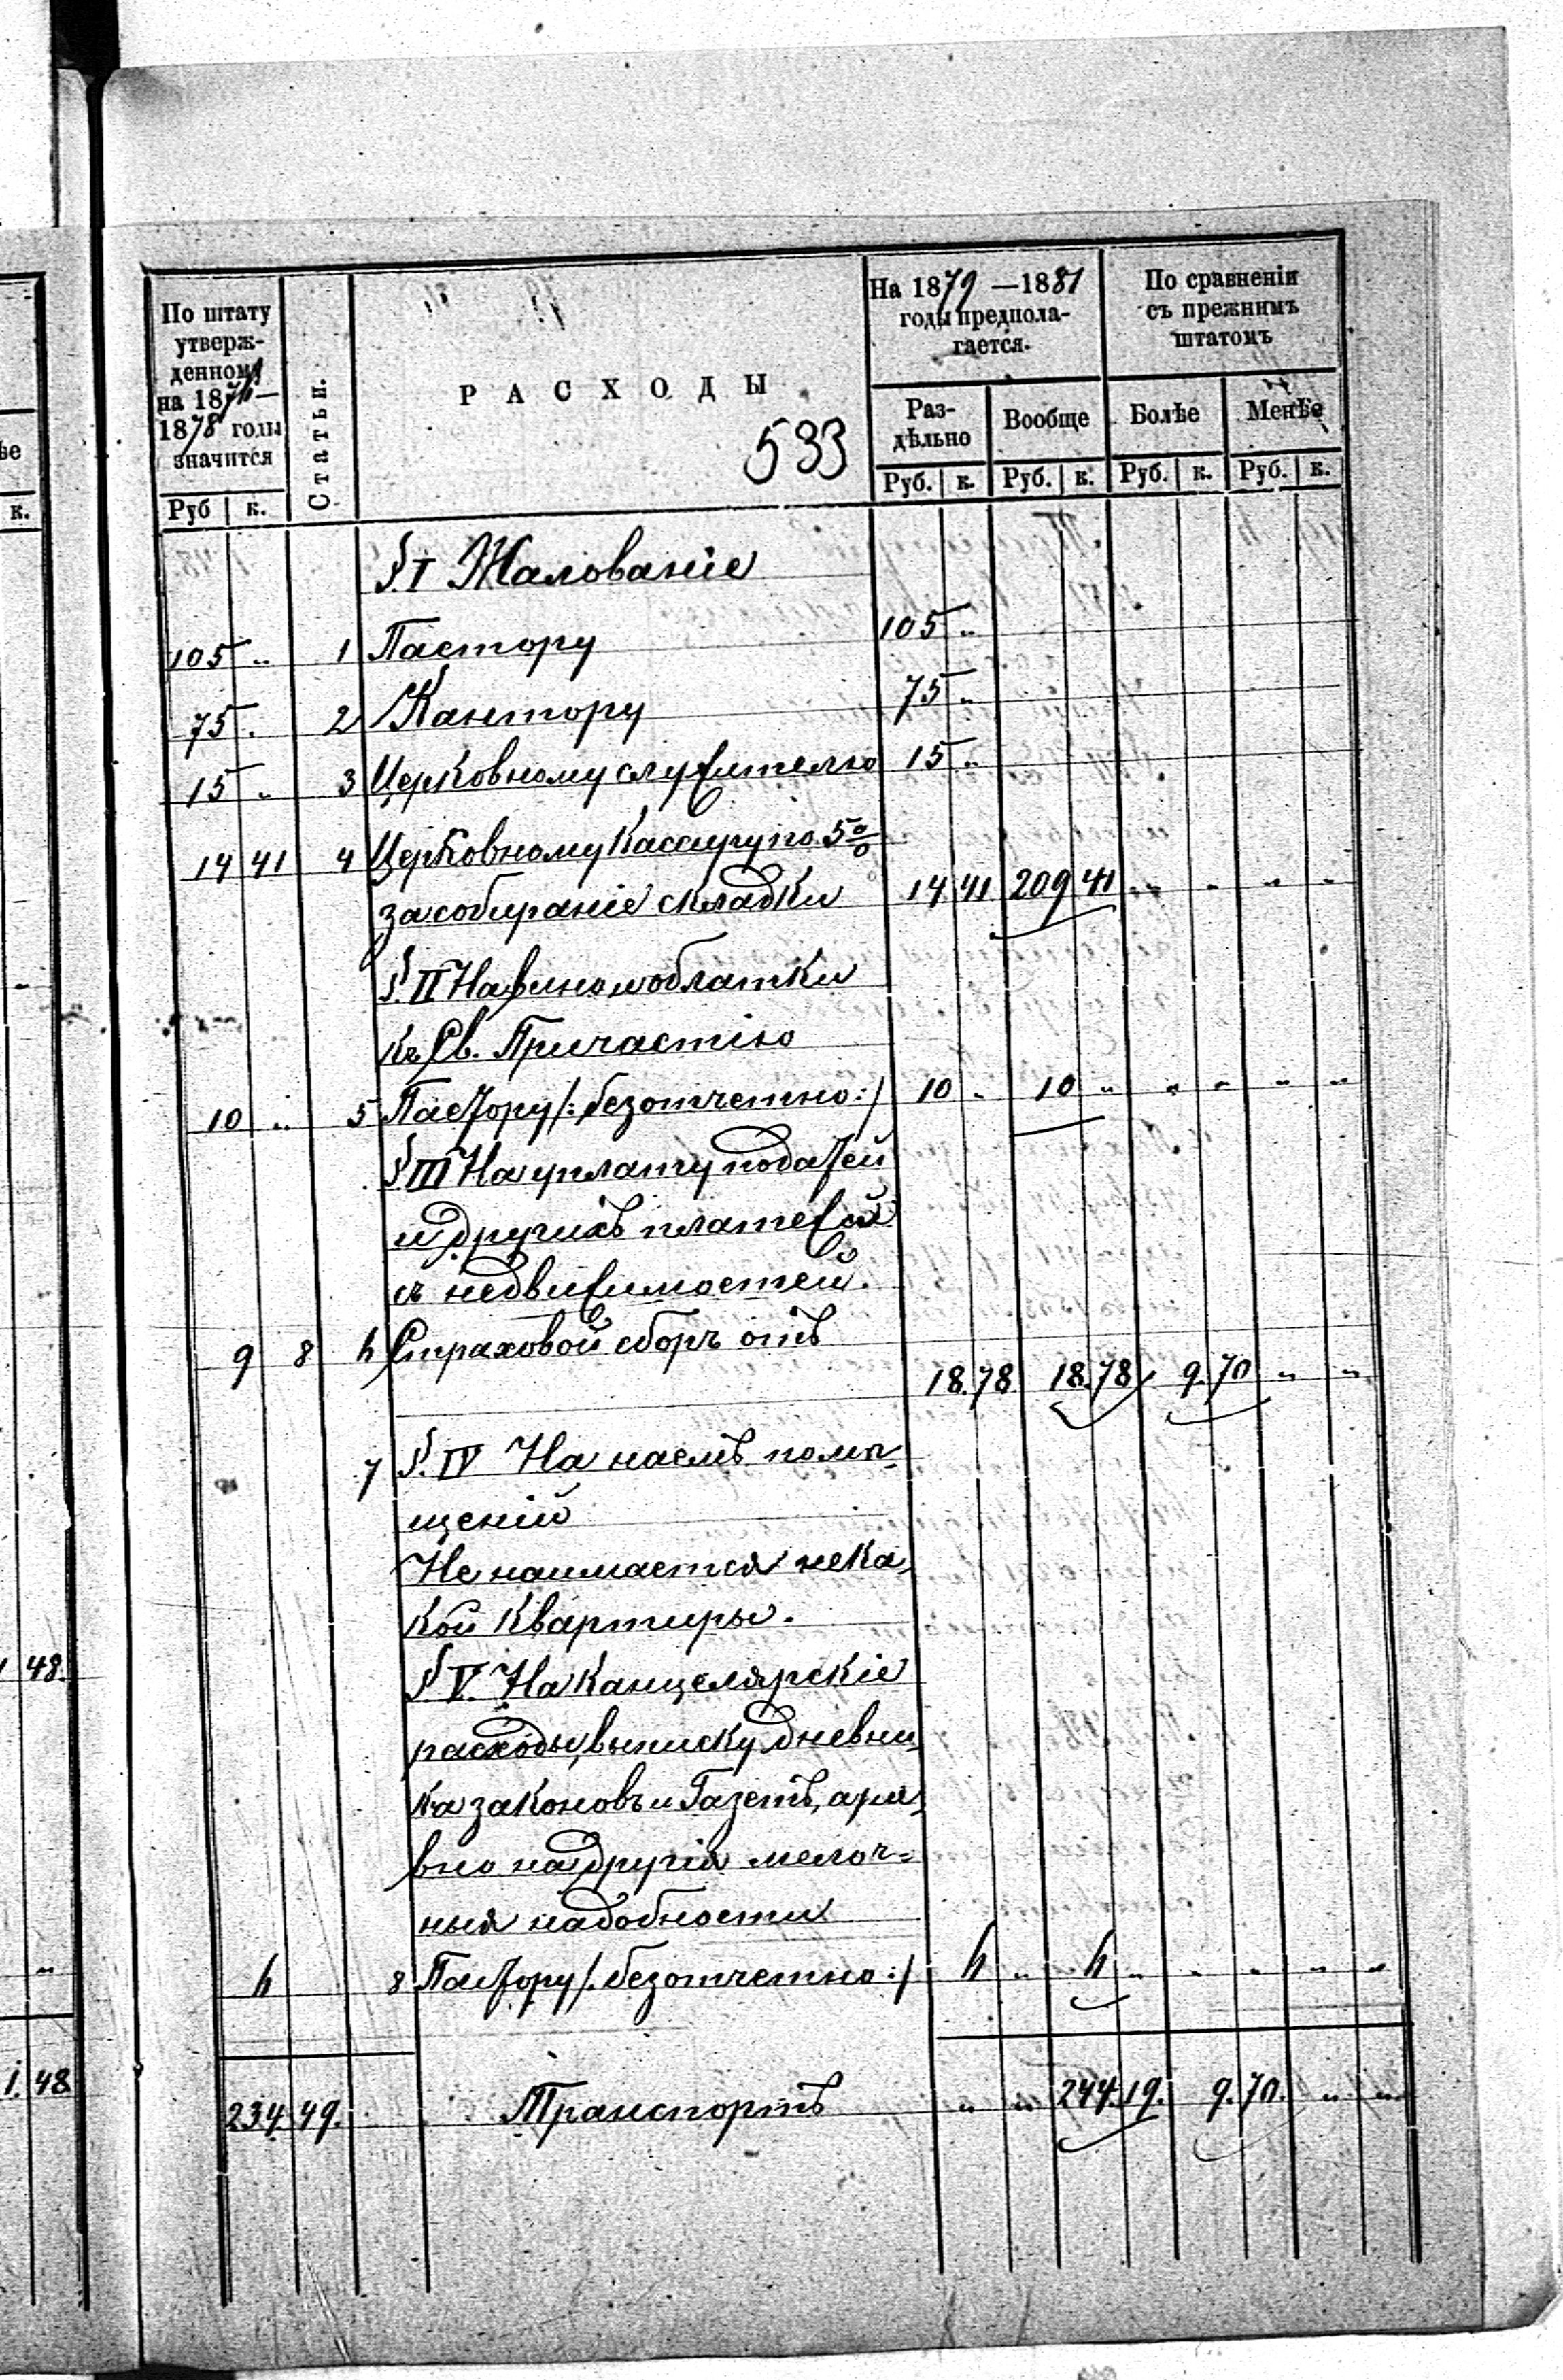 По штату
утверж-
денному
на 1876—
1878 годы
значится
Руб к.
Статьи.
РАСХОДЫ
533
На 1879 —1881
годы предпола-
гается.
Раз-
дѣльно
Вообще
Руб. к. Руб. к.
По сравненіи
съ прежнимъ
штатомъ
Болѣе
Менѣе
Руб. к. Руб. к.
§. I Жалованіе
105 „ 1 Пастору 105 „
75 „ 2 Кантору 75 „
15 „ 3 Церковному служителю 15 „
14 41 4 Церковному Кассиру по 5%
за собираніе складки 14 41 209 41 „ „ „ „
§. II На вино и облатки
къ Св. Причастію
10 „ 5 Пастору /: безотчетно :/ 10 „ 10 „ „ „ „ „
§ III На уплату податей
и другихъ платежей
съ недвижимостей.
9 8 6 Страховой сборъ отъ
18.78 18.78 9.70 „ „
7 §. IV На наемъ помѣ-
щеній
Не наимается нека-
кой Квартиры.
§ V. На Канцелярскіе
расходы, выписку дневни-
ка законовъ и Газетъ, а ра-
вно на другія мелоч=
ныя надобности
6 8 Пастору /: безотчетно :/ 6 „ 6 „ „ „ „ „
234.49. Транспортъ „ „ 244.19. 9.70. „ „
ѣе
к.
„
1 48.
„
1. 48